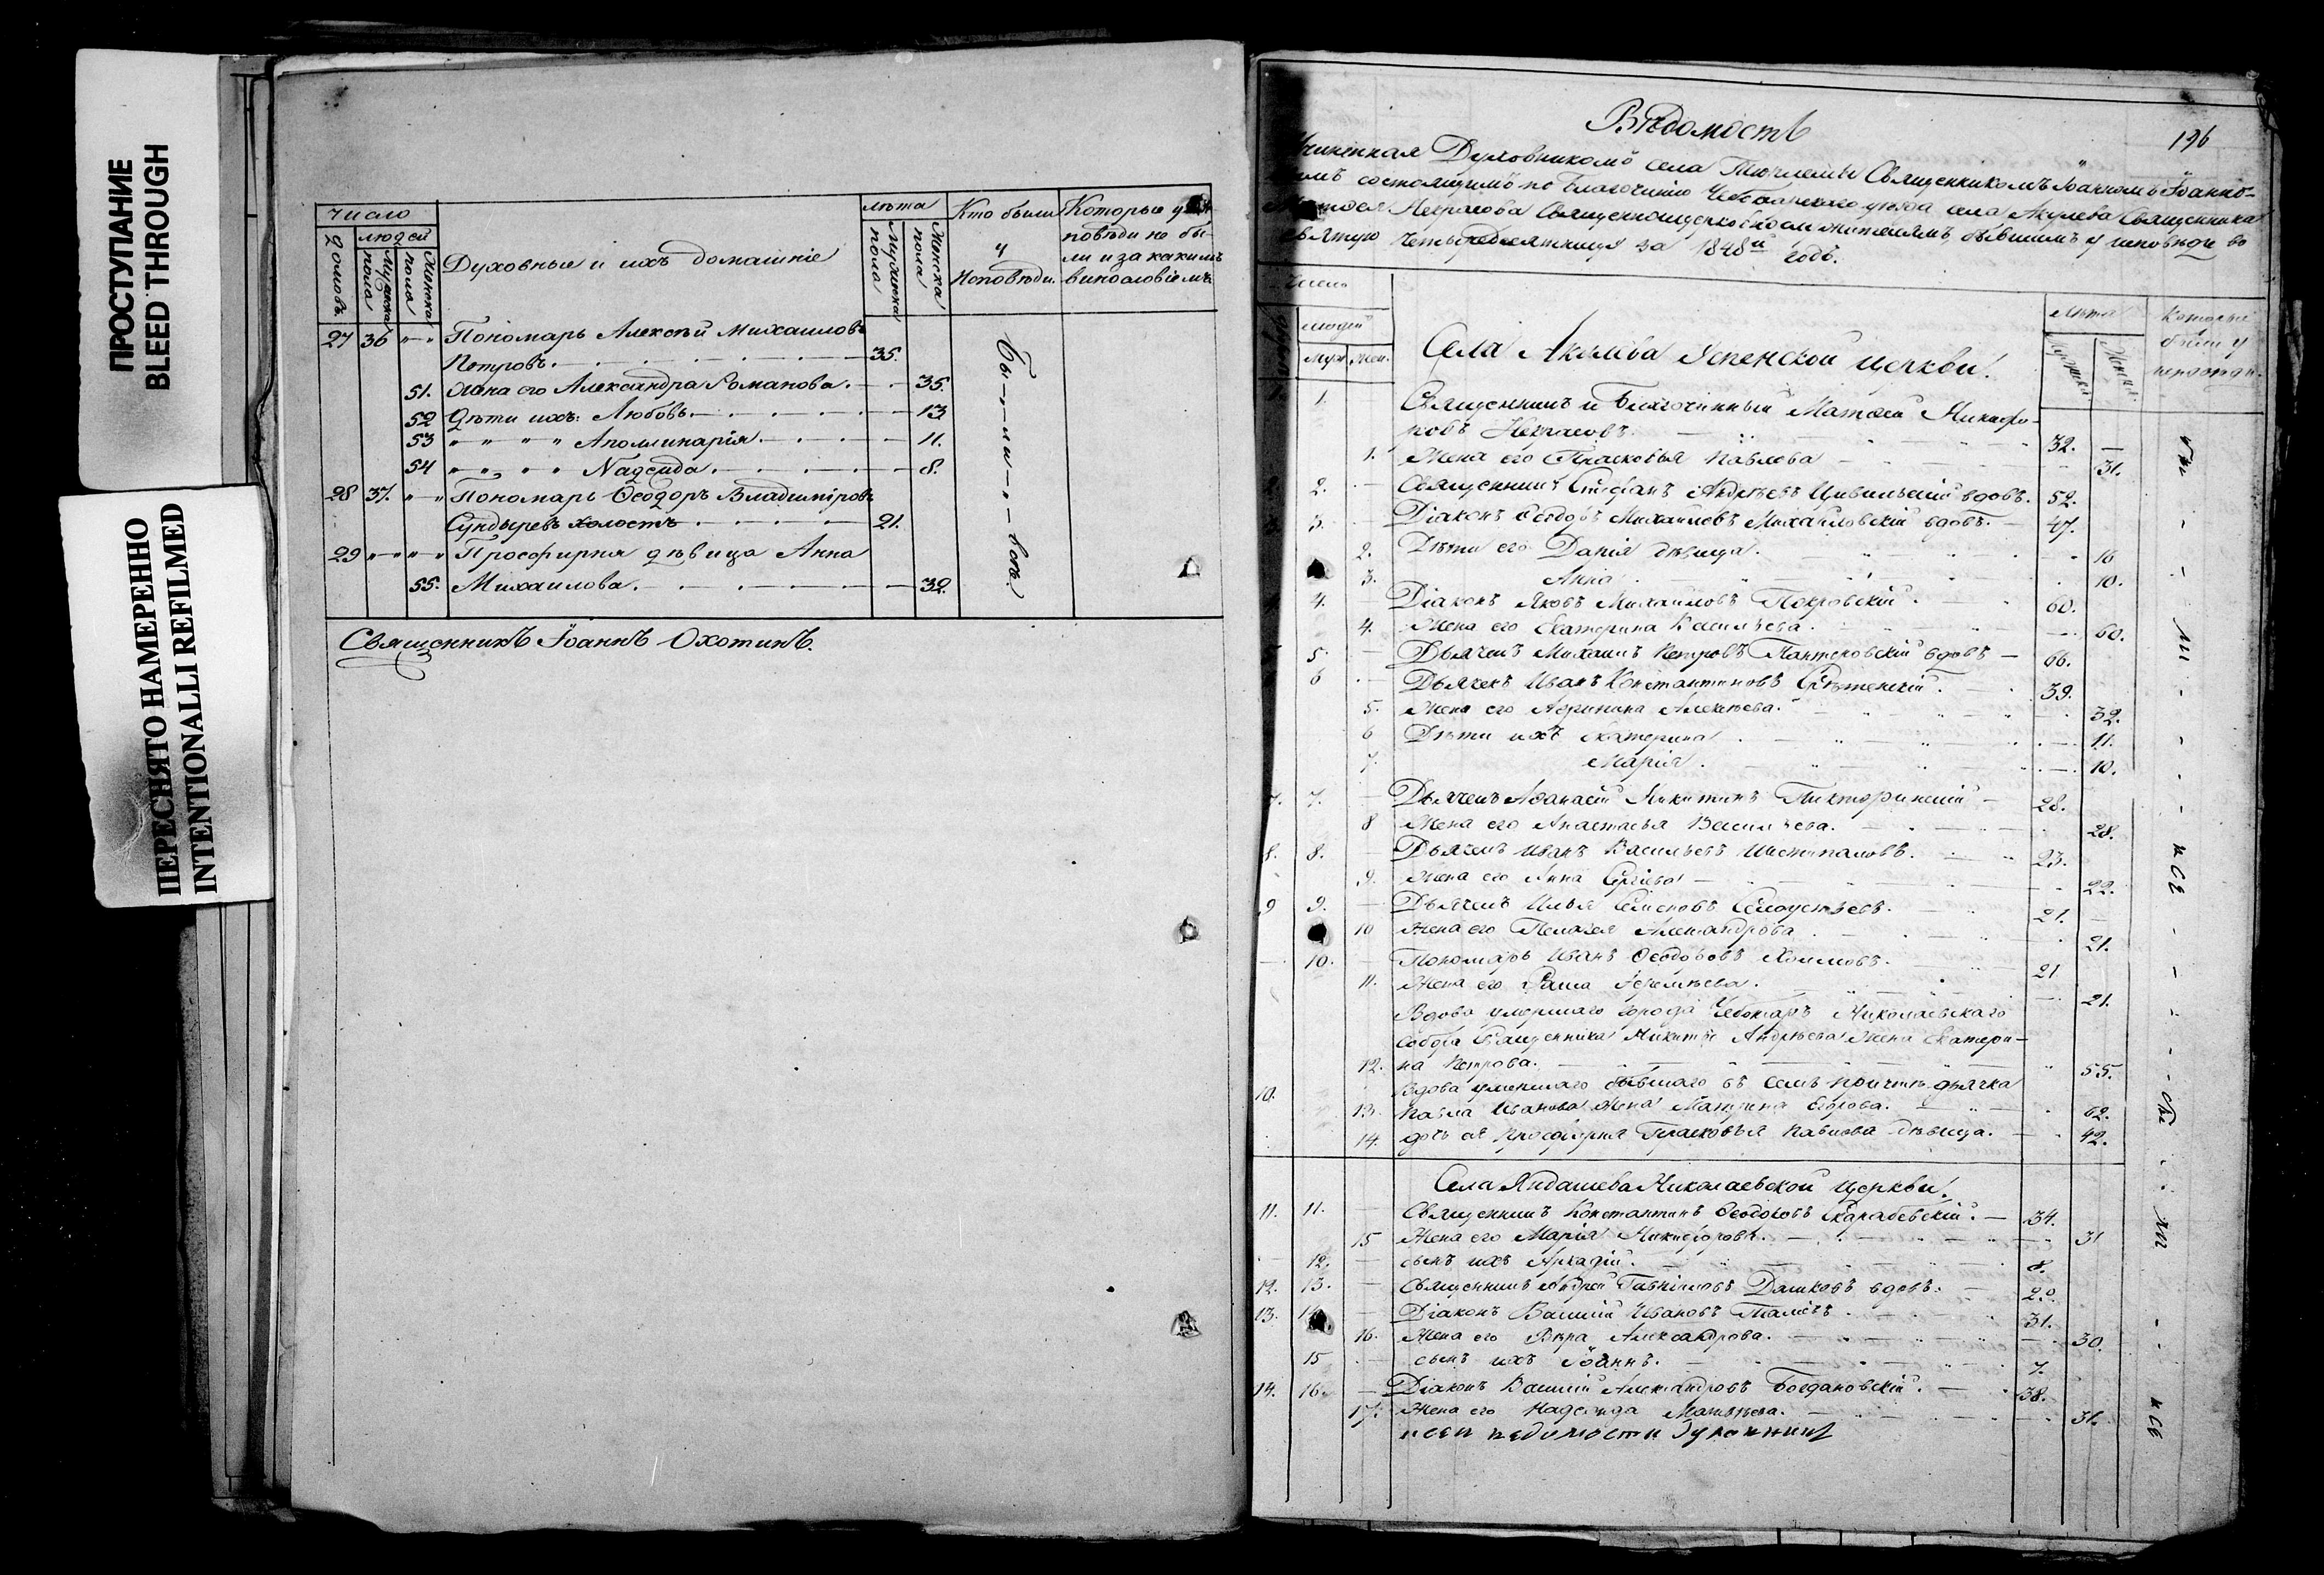 ПРОСТУПАНИЕ
BLEED THROUGH
ПЕРЕСНЯТО НАМЕРЕННО
INTENTIONALLI REFILMED
Число
Домовъ
людей
Мужска пола
Женска пола
Духовные и ихъ домашніе
лѣта
Мужска пола
Женска пола
Кто были
у
Исповѣди.
Которые у ис
повѣди не бы-
ли и за какимъ
винословіемъ
27 36 " " Пономарь Алексѣй Михаиловъ
Петровъ. 35.
51. Жена его Александра Романова. 35.
52 Дѣти ихъ: Любовь. 13
53 " " " " Аполлинарія. 11.
54 " " " " Надежда. 8.
28 37. " " Пономарь Ѳеодоръ Владиміровъ
Сундыревъ холостъ 21.
29 " " " " Просфирня дѣвица Анна
55. Михаилова. 32.
Бы - ли - - воѣ.
Священникъ Іоаннъ Охотинъ.
196
Вѣдомость
Учиненная Духовникомъ села Тюрлемы Священникомъ Іоанномъ Іоанно-
вымъ состоящимъ по благочинію Чебоксарскаго уѣзда села Акулева Священника
Матѳея Некрасова Священноцерковнослужителямъ, бывшимъ у исповѣди во
святую четыредесятницу за 1848й годъ.
Число
людей
Муж. Жен.
Села Акулева Успенской церкви.
лѣта
Мужска
Женска
Которые
были у
исповѣди.
1. Священникъ и Благочинный Матѳей Никифо-
ровъ Некрасовъ. 32.
1. Жена его Прасковья Павлова 31.
2. Священникъ Стефанъ Андреевъ Цивильскій вдовъ. 52.
3. Діаконъ Ѳеодоръ Михаиловъ Михайловскій вдовъ. 47.
2. Дѣти его Дарія дѣвица. 16
3. Анна 10.
4. Діаконъ Яковъ Михаиловъ Покровскій. 60.
4. Жена его Екатерина Васильева. 60.
5. Дьячекъ Михаилъ Петровъ вдовъ 66.
6 Дьячекъ Иванъ Константиновъ Срѣтенскій. 39.
5. Жена его Агрипина Алексѣева. 32.
6 Дѣти ихъ Екатерина 11.
7. Марія. 10.
7. 7. Дьячекъ Аѳанасій Никитинъ 28.
8 Жена его Анастасья Васильева. 28.
8. 8. Дьячекъ Иванъ Васильевъ 23.
9. Жена его Анна Сергіева 22.
9 9. Дьячекъ Илья Семеновъ 21.
10 Жена его Пелагея Александрова 21.
10. Пономарь Иванъ Ѳеодоровъ Холмовъ. 21
11. Жена его Раиса Іереміева. 21.
Вдова умершаго города Чебоксаръ Николаевскаго
собора Священника Никиты Андреева Жена Екатери-
12. на Петрова. 55.
10. Вдова умершаго бывшаго въ семъ причтѣ дьячка
13. Павла Иванова Жена Матрена Егорова. 62.
14. дочь ея просфирня Прасковья Павлова дѣвица. 42.
Села Яндашева Николаевской церкви.
11. 11. Священникъ Константинъ Ѳеодоровъ Карабевскій. 34.
15 Жена его Марія Никифорова. 31
12. сынъ ихъ Аркадій. 8.
12. 13. Священникъ Андрей Гавріиловъ Дашковъ вдовъ. 2
13. 14. Діаконъ Василій Ивановъ Таліевъ 31.
16. Жена его Вѣра Александрова. 30.
15 сынъ ихъ Іоаннъ. 7.
14. 16. Діаконъ Василій Александровъ Богдановскій. 38.
17. Жена его Надежда Матвѣева. 31.